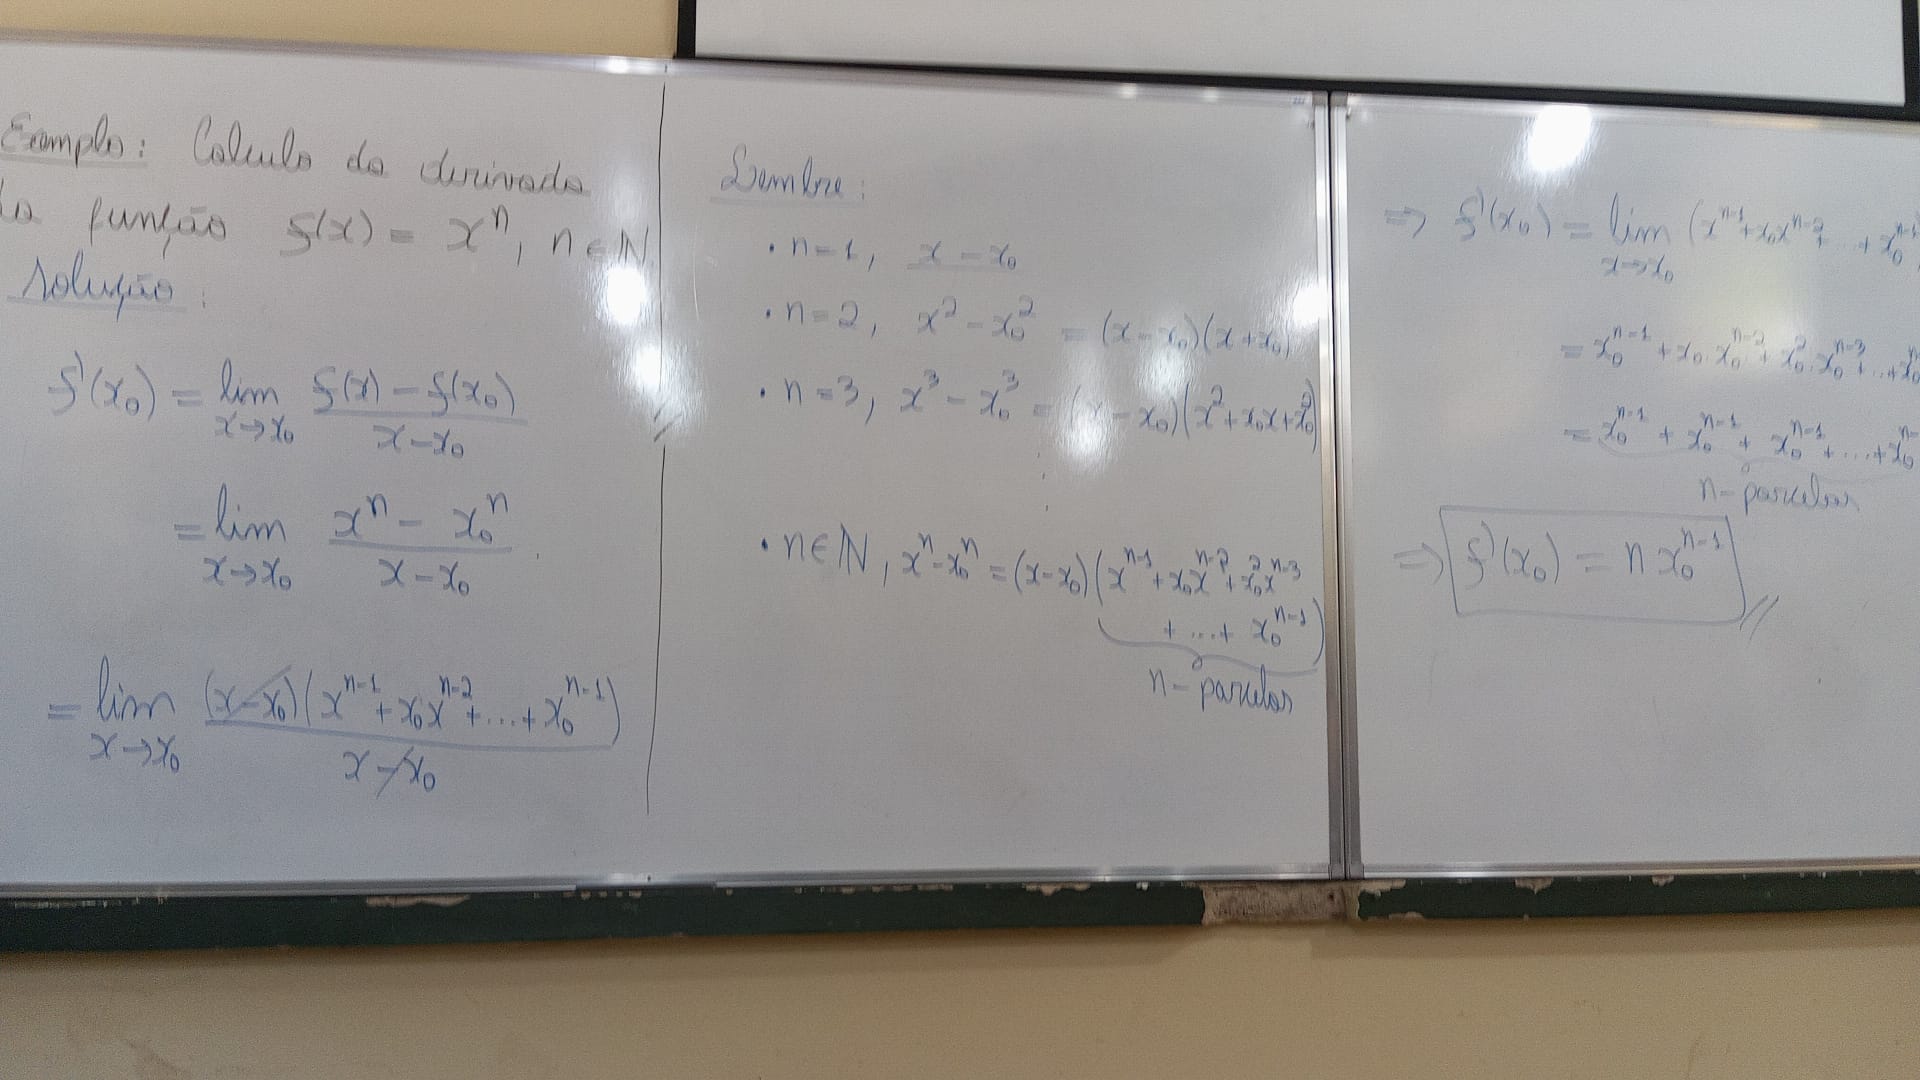 Exemplo: Calculo da derivada
da função f(x) = xⁿ, n ∈ ℕ
Solução:
f'(x₀) = lim_{x→x₀} (f(x) - f(x₀))/(x - x₀)
= lim_{x→x₀} (xⁿ - x₀ⁿ)/(x - x₀)
= lim_{x→x₀} (x - x₀)(xⁿ⁻¹ + x₀xⁿ⁻² + ... + x₀ⁿ⁻¹)/(x - x₀)
Lembre:
• n=1, x - x₀
• n=2, x² - x₀² = (x - x₀)(x + x₀)
• n=3, x³ - x₀³ = (x - x₀)(x² + x₀x + x₀²)
⋮
• n∈ℕ, xⁿ - x₀ⁿ = (x - x₀)(xⁿ⁻¹ + x₀xⁿ⁻² + x₀²xⁿ⁻³
+ ... + x₀ⁿ⁻¹)
n - parcelas
=> f'(x₀) = lim_{x→x₀} (xⁿ⁻¹ + x₀xⁿ⁻² + ... + x₀ⁿ⁻¹
= x₀ⁿ⁻¹ + x₀.x₀ⁿ⁻² + x₀².x₀ⁿ⁻³ + ... + x₀
= x₀ⁿ⁻¹ + x₀ⁿ⁻¹ + x₀ⁿ⁻¹ + ... + x₀ⁿ⁻
n - parcelas
=> f'(x₀) = n x₀ⁿ⁻¹ //